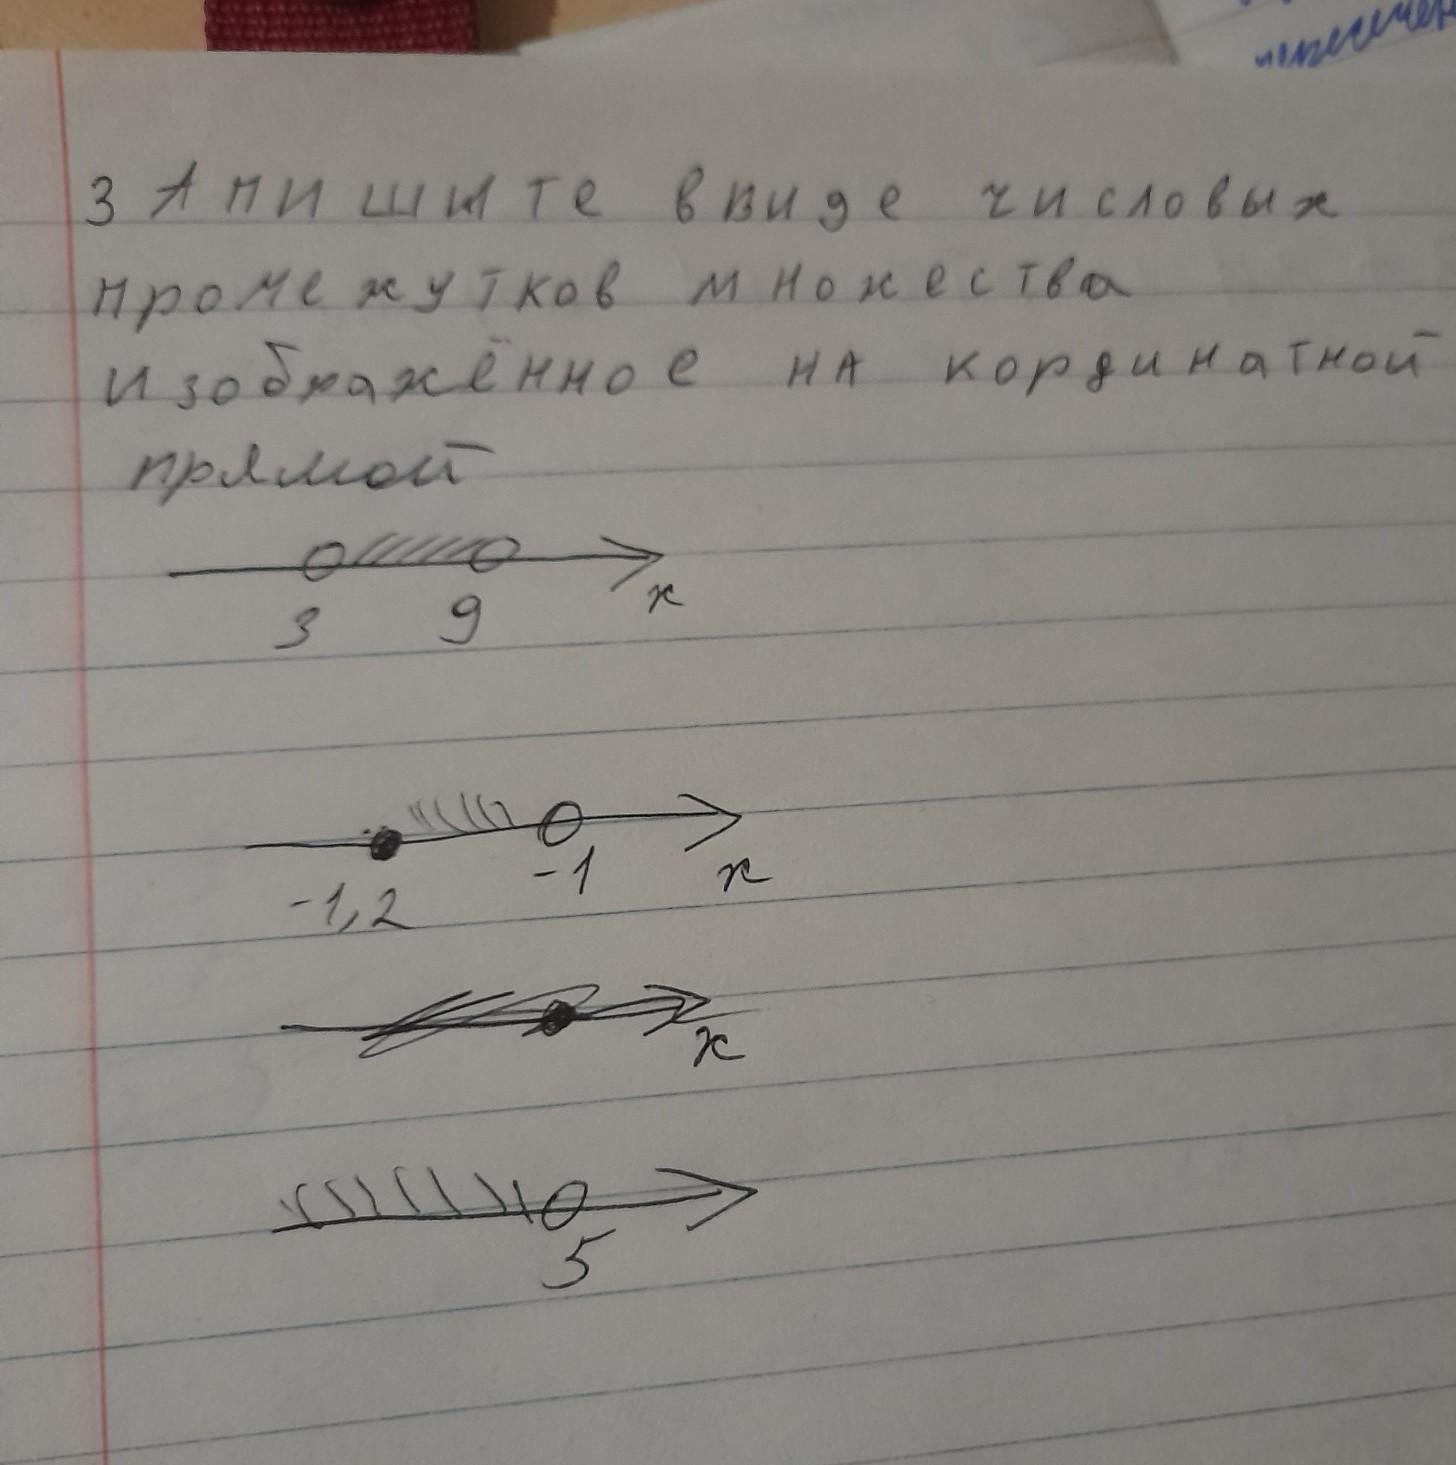 ЗАПИШИТЕ в виде числовых
промежутков множества
изображённое на кординатной
прямой
3 9 x
-1,2 -1 x
x
5